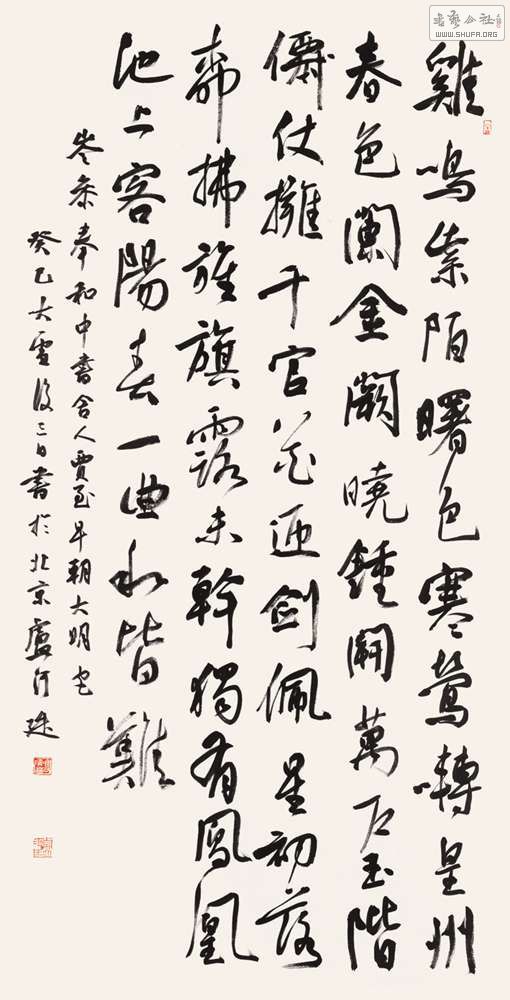 書藝公社
WWW.SHUFA.ORG
雞鳴紫陌曙色寒鶯囀皇州
春色闌金闕曉鍾開萬戶玉階
僊仗擁千官花迎劍佩星初落
柳拂旌旗露未幹獨有鳳凰
池上客陽春一曲和皆難
岑參奉和中書舍人賈至早朝大明宮
癸巳大雪後三日書於北京盧